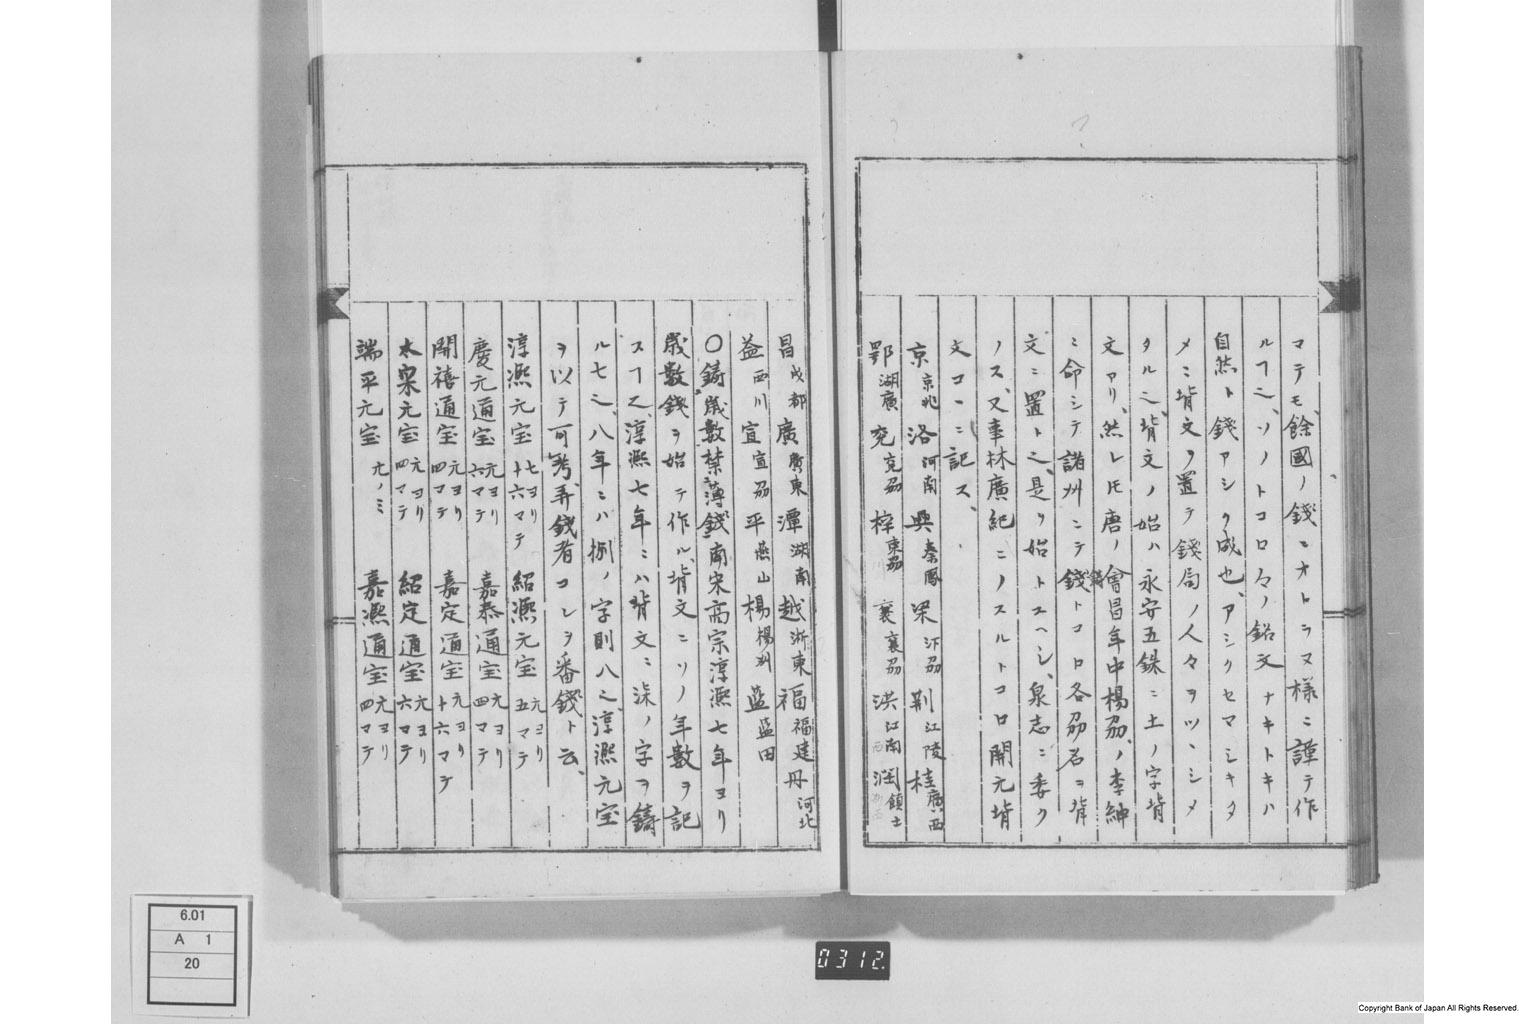 マテモ、餘國ノ錢ニオトラヌ樣ニ謹テ作
ルヿ之、ソノトコロ々ノ銘文ナキトキハ
自然ト錢アシク成也、アシクセマシキタ
メニ背文ヲ置テ錢局ノ人々ヲツヽシメ
タル之、背文ノ始ハ永安五銖ニ土ノ字背
文アリ、然レ𪜈唐ノ會昌年中楊州ノ李紳
ニ命シテ諸州ニテ錢鑄トコロ各州名ヲ背
文ニ置ト之、是ヲ始トスヘシ、泉志ニ委ク
ノス、又事林廣紀ニノスルトコロ開元背
文コヽニ記ス、
京京兆 洛河南 興秦鳳 梁汴州 荊江陵 桂廣西
鄂湖廣 兗兗州 梓東川 襄襄州 洪江南 潤鎮土
昌成都 廣廣東 潭湖南 越浙東 福福建 丹河北
益西川 宣宣州 平燕山 楊楊州 藍藍田
〇鑄歳數禁薄錢南宋高宗淳熈七年ヨリ
歳數錢ヲ始テ作ル、背文ニソノ年數ヲ記
スヿ之、淳熈七年ニハ背文ニ柒ノ字ヲ鑄
ル七之、八年ニハ捌ノ字則八之、淳熈元宝
ヲ以テ可考、弄錢者コレヲ番錢ト云、
淳熈元宝 七ヨリ十六マテ 紹熈元宝 元ヨリ五マテ
慶元通宝 元ヨリ六マテ 嘉泰通宝 元ヨリ四マテ
開禧通宝 元ヨリ四マテ 嘉定通宝 元ヨリ十六マテ
大宋元宝 元ヨリ四マテ 紹定通宝 元ヨリ六マテ
端平元宝 元ノミ 嘉熈通宝 元ヨリ四マテ
6.01
A 1
20
0312.
Copyright Bank of Japan All Rights Reserved.